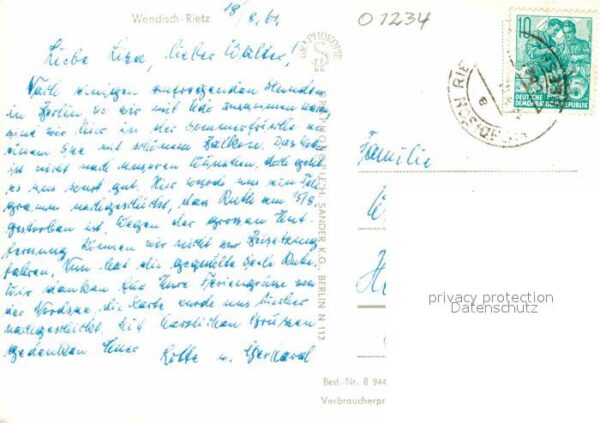 Wendisch-Rietz
18/8.61
01234
Liebe Lisa, lieber Walter!
Nach einigen aufregenden Stunden
in Berlin wo wir mit Udo zusammen waren
sind wir hier in der Sommerfrische an
einem See mit schönem Balkon. Das
ist nicht nach unseren Wünschen, doch geht
es uns sonst gut. Hier wurde uns ein Tele
gramm nachgeschickt, dass Ruth am 15/8.
gestorben ist. Wegen der grossen Ent-
fernung können wir nicht zur Beisetzung
fahren. Nun hat die gequälte Seele Ruhe.
Wir danken für Eure Feriengrüsse von
der Nordsee, die Karte wurde uns hierher
nachgeschickt. Mit herzlichen Grüssen
gedenken Euer Lotte u.
GRAPHOKOPIE
SANDER K.G., BERLIN N 113
10
DEUTSCHE
DEMOKRATISCHE REPUBLIK
Familie
privacy protection
Datenschutz
Best. Nr. B 944
Verbraucherpr